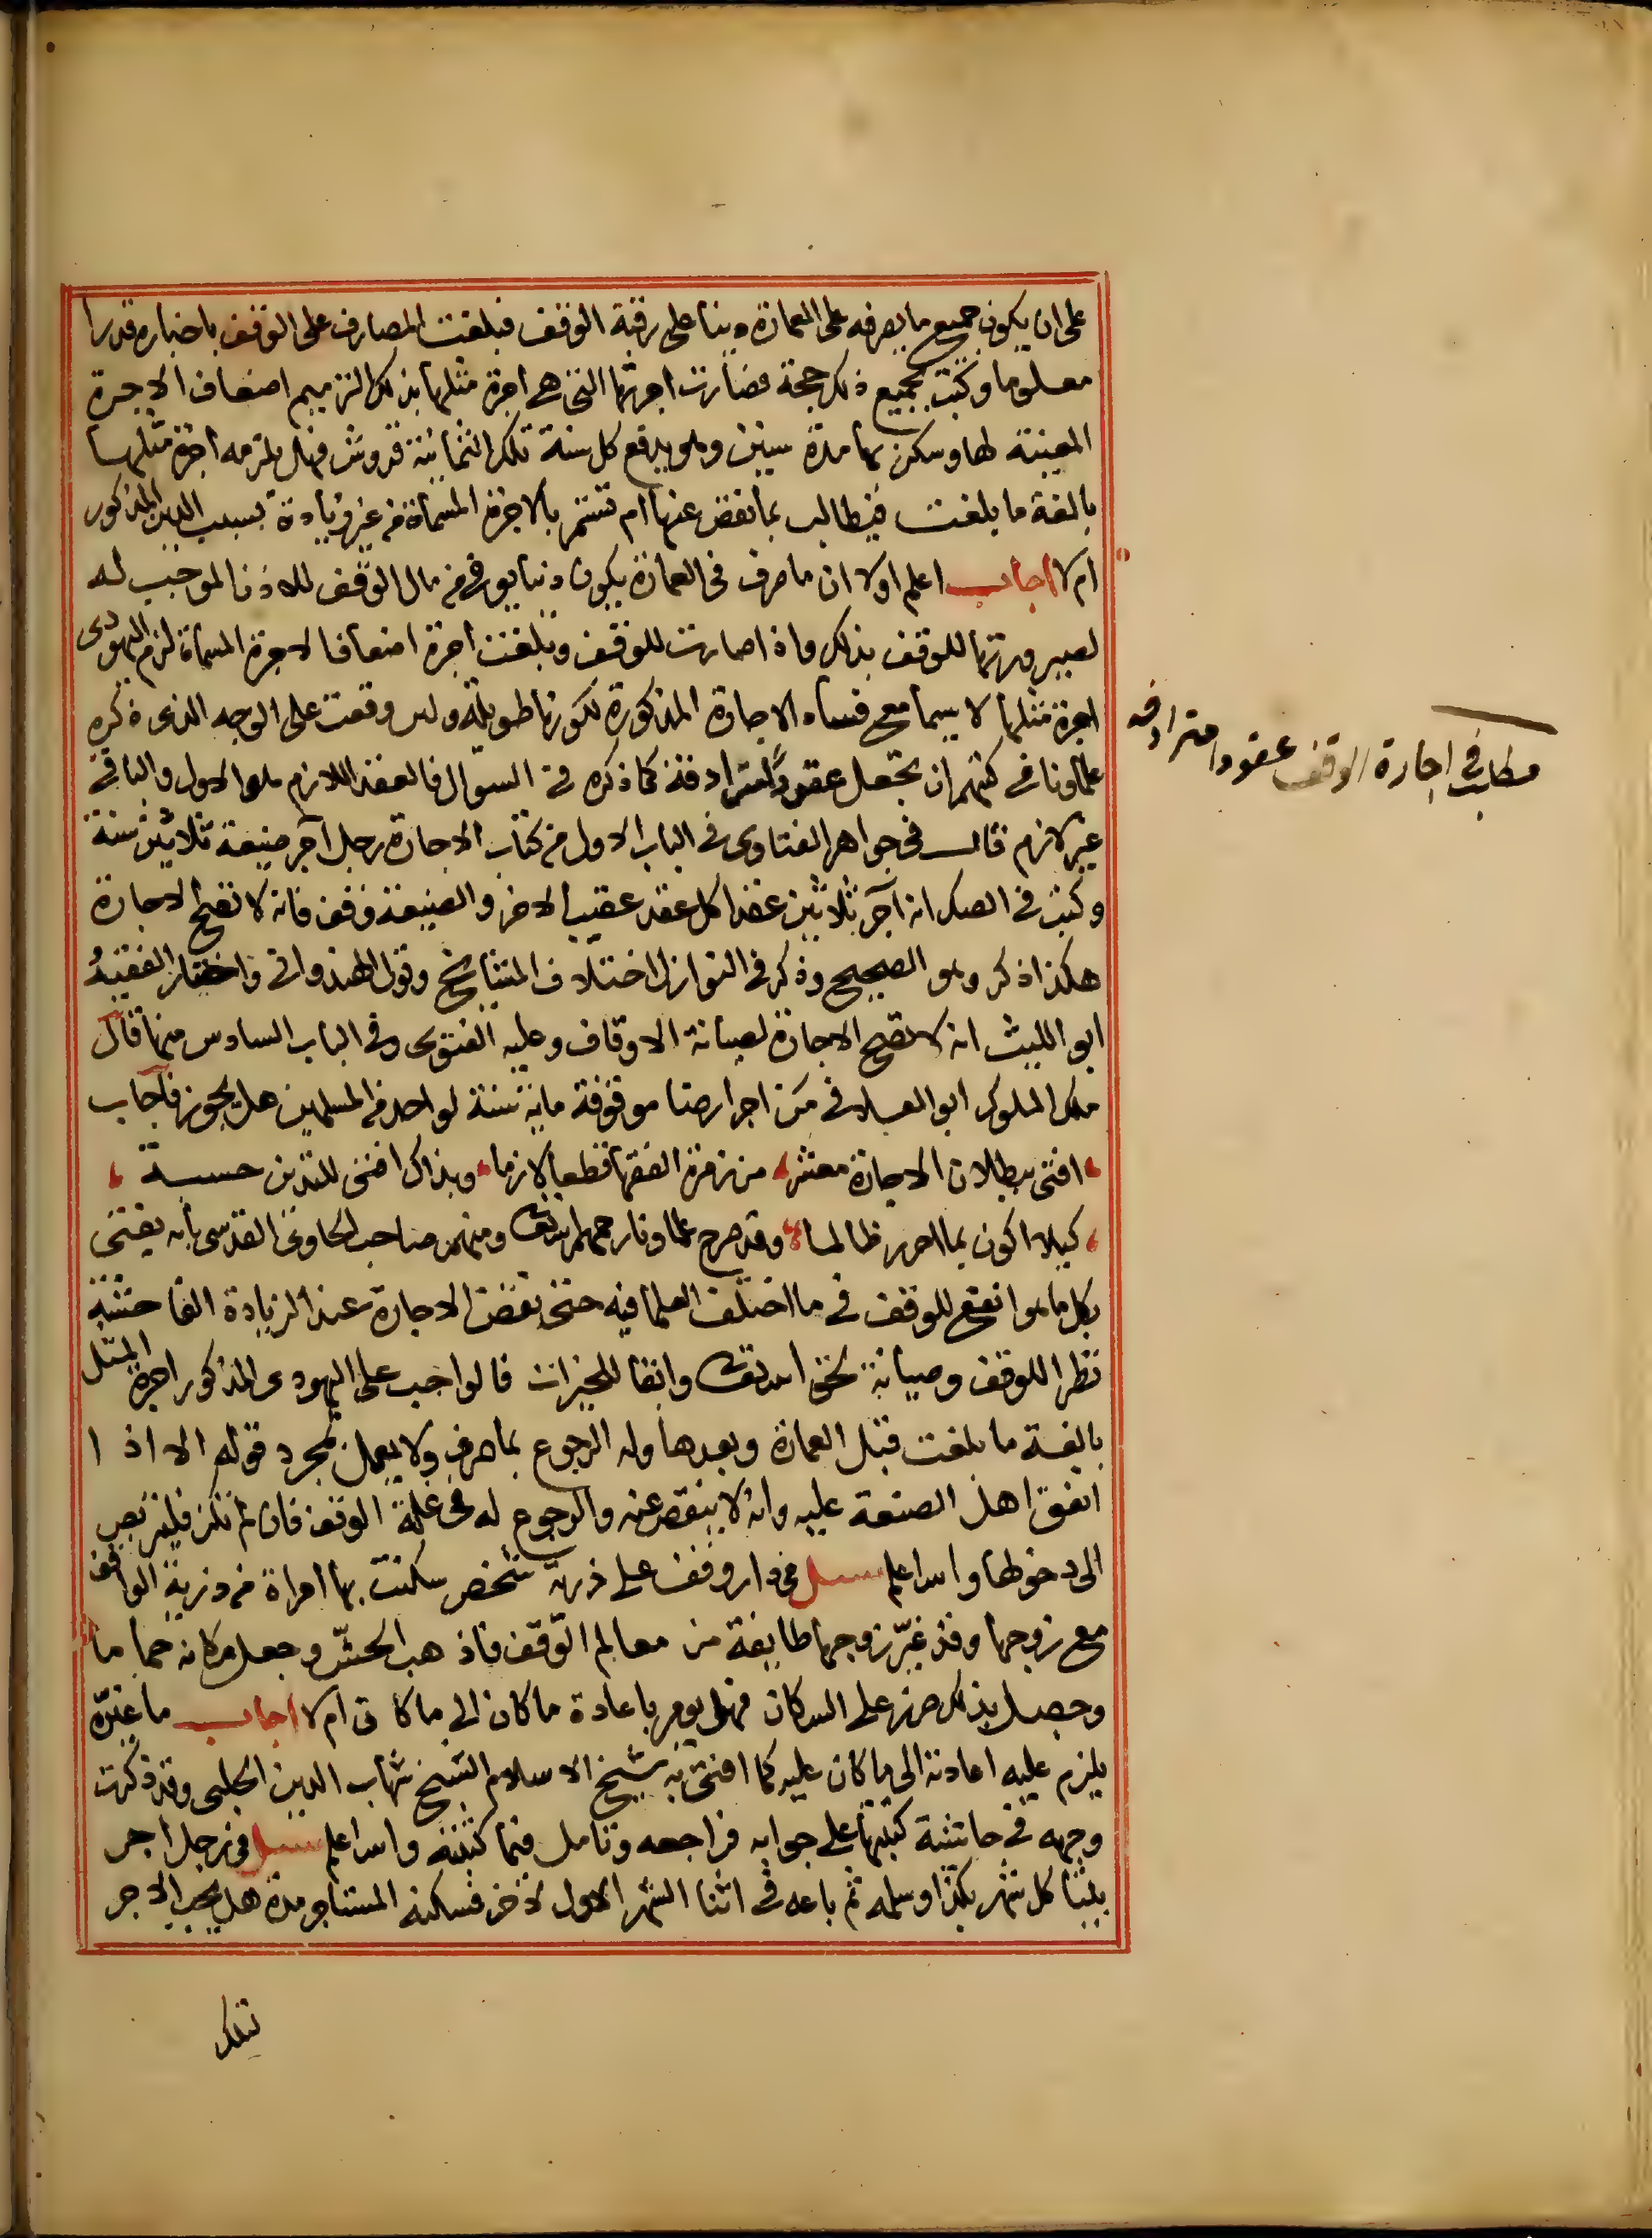 على ان يكون جميع ما يصرفه على العمارة دينا على رقبة الوقف فبلغت المصارف على الوقف باخباره قدرا
معلوما وكتب بجميع ذلك حجة فصارت اجرتها التي هي اجرة مثلها بذلك الترميم اضعاف الاجرة
المعينة لها وسكن بها مدة سنين وهو يدفع كل سنة تلك الثمانية قروش فهل يلزمه اجرة مثلها
بالغة ما بلغت فيطالب بما نقص عنها ام تستمر بالاجرة المسماة من غير زيادة بسبب الدين المذكور
ام لا اجاب اعلم اولا ان ما صرف في العمارة يكون دينا يوفى من مال الوقف للاذن الموجب له
لصيرورتها للوقف بذلك واذا صارت للوقف وبلغت اجرة اضعافا لاجرة المسماة لزم اليهودى
اجرة مثلها لا سيما مع فساد الاجارة المذكورة لكونها طويلة وليس وقعت على الوجه الذى ذكره
علماونا في كتبهم ان يجعل عقودا مترادفة كما ذكره في السوال فالعقد اللازم هو الاول والباقى
غير لازم قال في جواهر الفتاوى في الباب الاول من كتاب الاجارة رجل آجر ضيعة ثلاثين سنة
وكتب في الصك انه آجر بثلاثين عقدا كل عقد عقيب الاخر والضيعة وقف فانه لا تصح الاجارة
هكذا ذكر وهو الصحيح وذكر في النوازل اختلاف المشايخ وقول الهندوانى واختار الفقيه
ابو الليث انه لا تصح الاجارة لصيانة الاوقاف وعليه الفتوى وفي الباب السادس منها قال
ملك الملوك ابو العلا في من اجر ارضا موقوفة ماية سنة لواحد من المسلمين هل يجوز فاجاب
افتى ببطلان الاجارة معشر من زمرة الفقها قطعا لازما وبذاك افتى للتدين حسبة
كيلا اكون بما احرر ظالما وقد صرح علماونا رحمهم الله تعالى ومنهم صاحب الحاوى القدسى بانه يفتى
بكل ما هو انفع للوقف في ما اختلف العلما فيه حتى نقض الاجارة عند الزيادة الفاحشة
نظرا للوقف وصيانة لحق الله تعالى وابقا للخيرات فالواجب على اليهودى المذكور اجرة المثل
بالغة ما بلغت قبل العمارة وبعدها وله الرجوع بما صرف ولا يعمل بمجرد قوله الا اذا
اتفق اهل الصنعة عليه وانه لا ينقص عنه والرجوع له في غلة الوقف فان لم تكن فليتربص
الى دخولها والله اعلم سئل في دار وقف على ذرية شخص سكنت بها امراة من ذرية الواقف
مع زوجها وقد غير زوجها طايفة من معالم الوقف فاذهب الحش وجعل مكانه حماما
وحصل بذلك ضرر على السكان فهل يومر باعادة ما كان الى ما كان ام لا اجاب ما غيره
يلزم عليه اعادته الى ما كان عليه كما افتى به شيخ الاسلام الشيخ شهاب الدين الحلبى وقد ذكرت
وجهه في حاشية كتبتها على جوابه فراجعه وتامل فيما كتبته والله اعلم سئل في رجل اجر
بيتا كل شهر بكذا وسلمه ثم باعه في اثنا الشهر الاول لاخر فسكنه المستاجر مدة هل يجب الاجر
مطلب في اجارة الوقف عقودا مترادفه
تلك